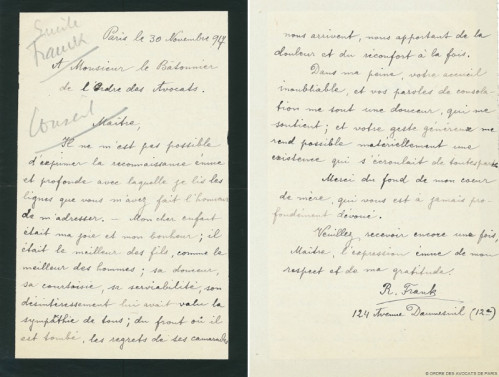 Guerite
Franck
Paris le 30 Novembre 917
A Monsieur le Bâtonnier
de l'Ordre des Avocats.
Conseil
Maître,
Il ne m'est pas possible
d'exprimer la reconnaissance émue
et profonde avec laquelle je lis les
lignes que vous m'avez fait l'honneur
de m'adresser. — Mon cher enfant
était ma joie et mon bonheur ; il
était le meilleur des fils, comme le
meilleur des hommes ; sa douceur,
sa courtoisie, sa serviabilité, son
désintéressement lui avait valu la
sympathie de tous ; du front où il
est tombé, les regrets de ses camarades
nous arrivent, nous apportant de la
douleur et du réconfort à la fois.
Dans ma peine, votre accueil
inoubliable, et vos paroles de consola-
tion me sont une douceur, qui me
soutient ; et votre geste généreux me
rend possible matériellement une
existence qui s'écroulait de toutes parts.
Merci du fond de mon coeur
de mère, qui vous est à jamais pro-
fondément dévoué.
Veuillez recevoir encore une fois,
Maître, l'expression émue de mon
respect et de ma gratitude.
R. Frank
124 Avenue Daumesnil (12e)
© ORDRE DES AVOCATS DE PARIS